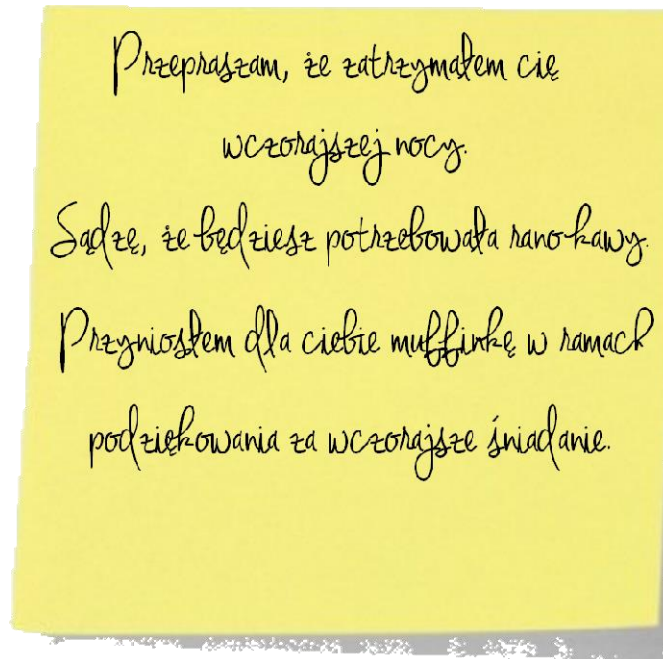 Przepraszam, że zatrzymałem cię
wczorajszej nocy.
Sądzę, że będziesz potrzebowała rano kawy.
Przyniosłem dla ciebie muffinkę w ramach
podziękowania za wczorajsze śniadanie.